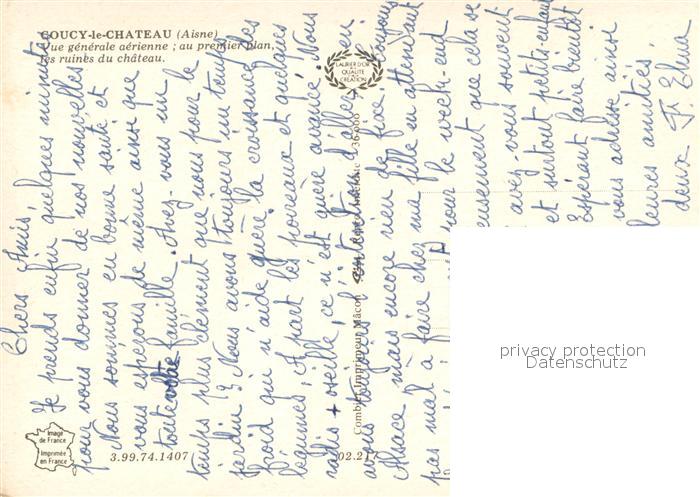 COUCY-le-CHATEAU (Aisne)
Vue générale aérienne ; au premier plan,
les ruines du château.
LAURIER D'OR
DE LA
QUALITÉ
CRÉATION
Chers Amis
Je prends enfin quelques minutes
pour vous donner de nos nouvelles
Nous sommes en bonne santé et
vous espérons de même ainsi que
toute votre famille. Avez-vous un
temps plus clément que nous pour le
jardin ? Nous avons toujours un temps
froid qui n'aide guère la croissance des
légumes. A part les poireaux et quelques
radis + oseille, ce n'est guère avancé. Nous
avons toujours l'intention d'aller en
Alsace mais encore rien de fixe. Toujours
pas mal à faire chez ma fille en attendant
pour le week-end
que cela se
avez-vous souvent
et surtout petits-enfants
Espérant faire bientôt
vous adresse ainsi
leures amitiés.
deux
Combier Imprimeur Mâcon
Image
de France
Imprimée
en France
3.99.74.1407
02.217
privacy protection